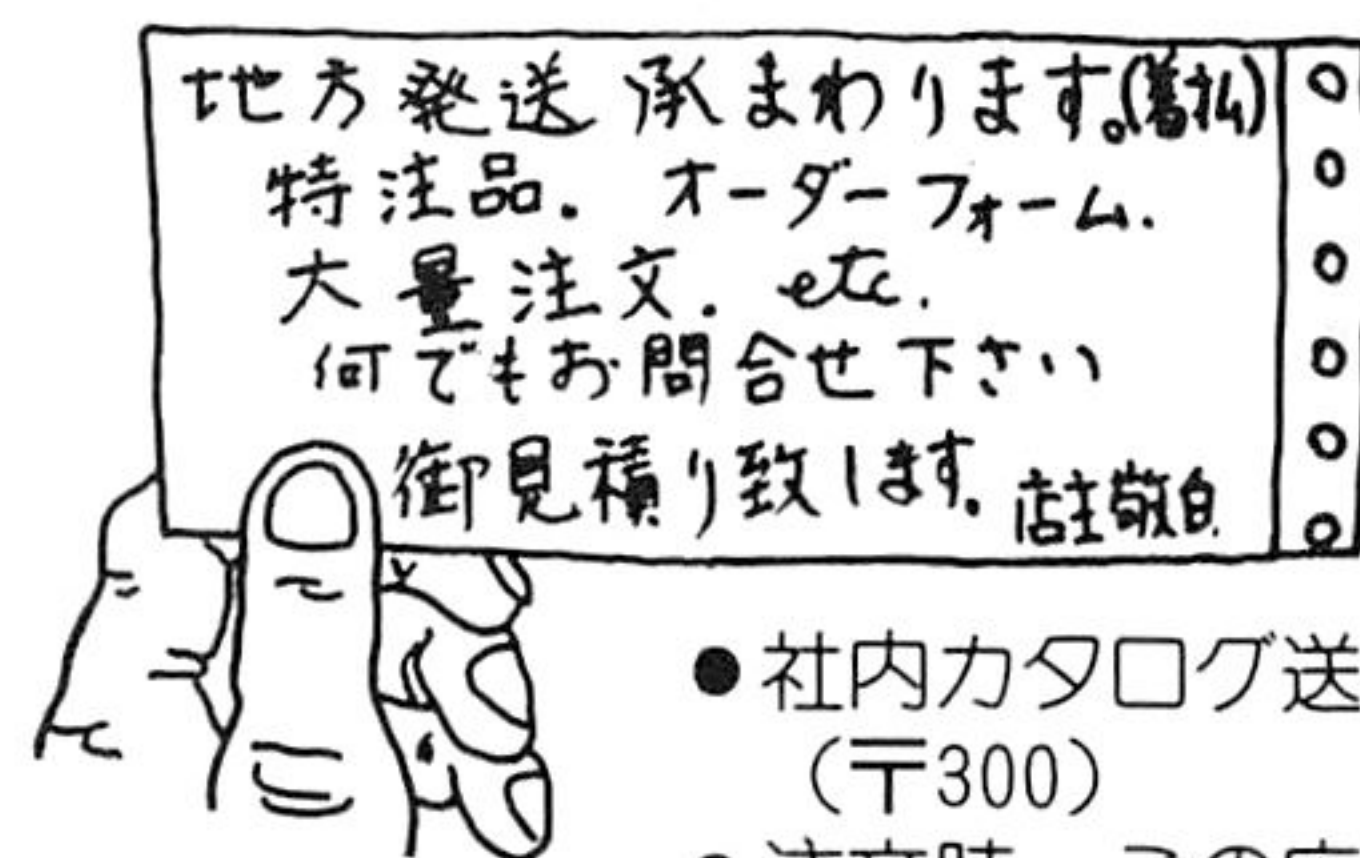 地方発送 承まわります。(着払)
特注品. オーダーフォーム.
大量注文. etc.
何でもお問合せ下さい
御見積り致します。店主敬白
●社内カタログ送
(〒300)